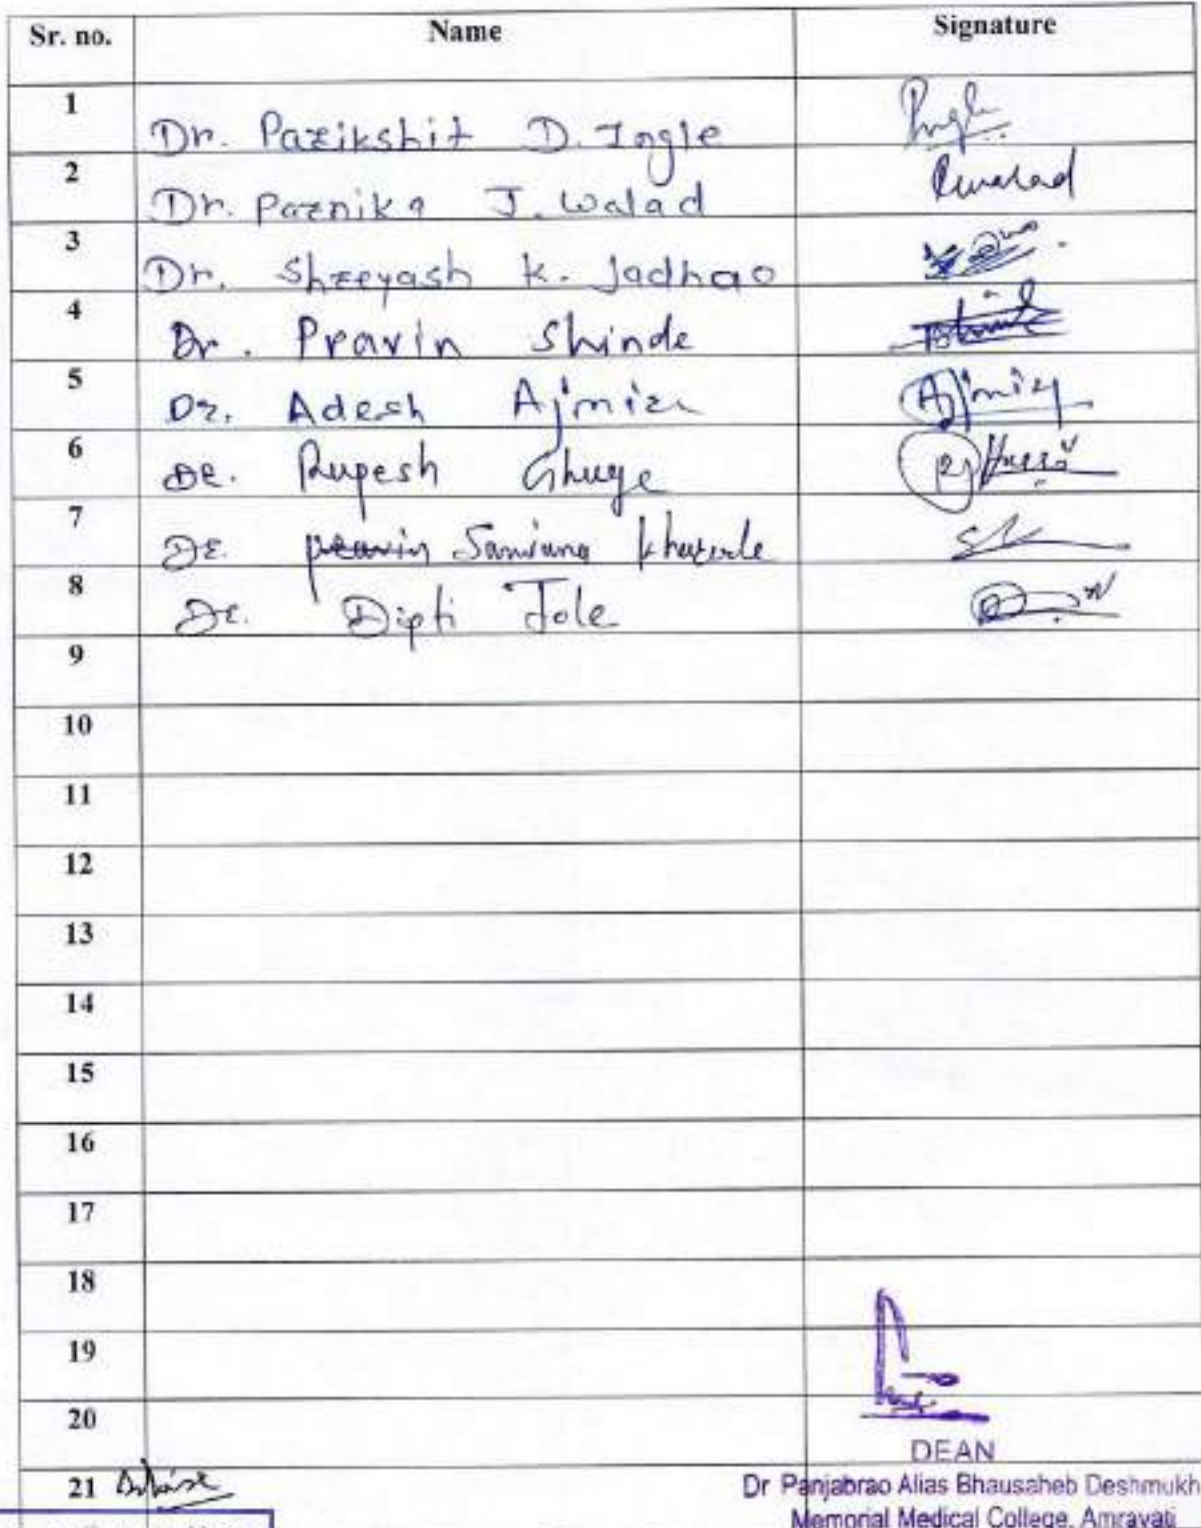 Sr. no. Name Signature
1 Dr. Parikshit D. Ingle Pingle
2 Dr. Parnika J. Walad Pwalad
3 Dr. Shreyash K. Jadhao
4 Dr. Pravin Shinde
5 Dr. Adesh Ajmire Ajmire
6 Dr. Rupesh Ghuge
7 Dr. pravin Sanjana
8 Dr. Dipti Tole
9
10
11
12
13
14
15
16
17
18
19
20
DEAN
21
Dr Panjabrao Alias Bhausaheb Deshmukh
Memorial Medical College, Amravati